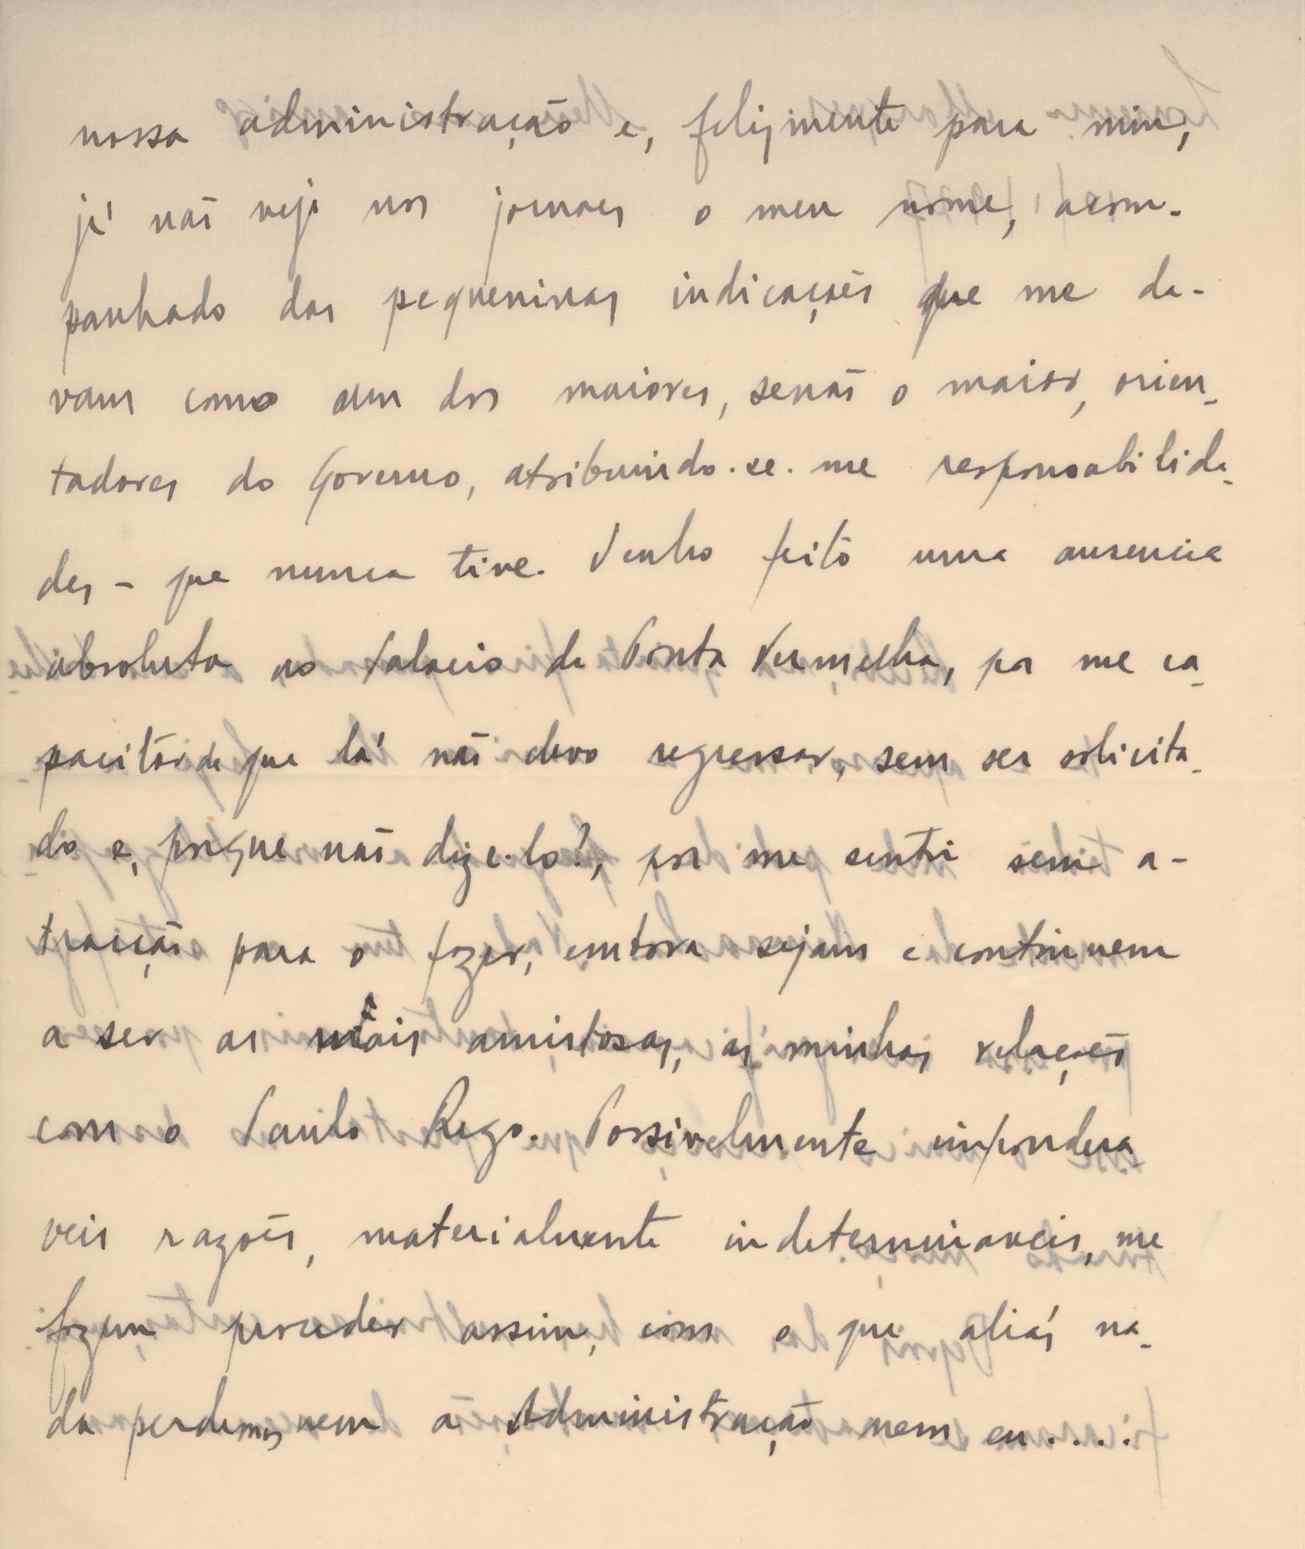 nossa administração e, felizmente para mim,
já não vejo nos jornaes o meu nome, acom-
panhado das pequeninas indicações que me da-
vam como um dos maiores, senão o maior, orien-
tadores do Governo, atribuindo-se-me responsabilida-
des - que nunca tive. Tenho feito uma ausencia
absoluta ao Palacio da Ponta Vermelha, por me ca-
pacitar de que lá não devo regressar, sem ser solicita-
do e, porque não dize-lo?, por me sentir sem a-
tracção para o fazer, embora sejam e continuem
a ser as mais amistosas, as minhas relações
com o Paulo Rego. Possivelmente impondera
veis razões, materialmente indeterminaveis, me
fazem proceder assim, com o que aliás na-
da perdemos nem a Administração nem eu....